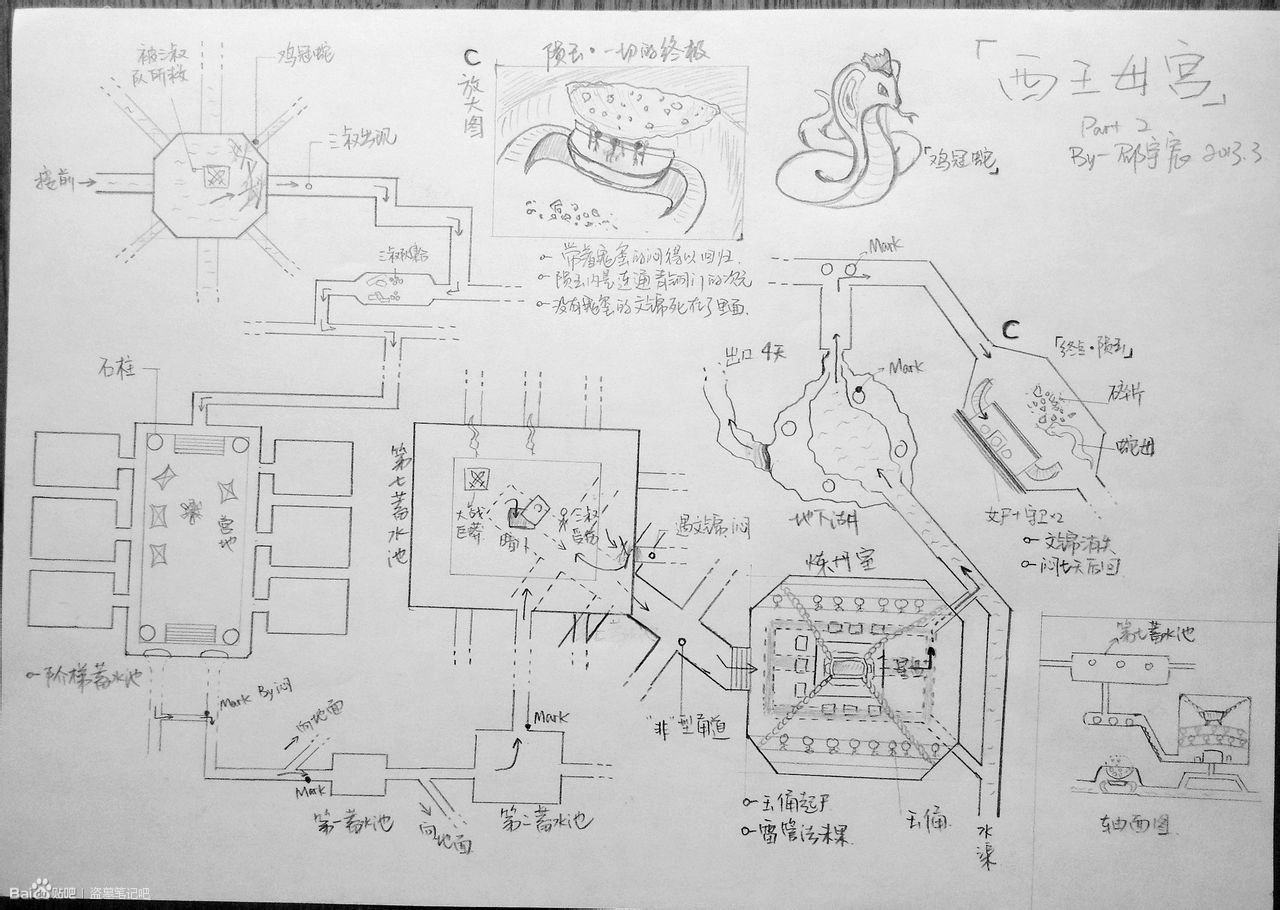 「西王母宫」
Part 2
2013.3
被三叔
队所救
鸡冠蛇
三叔出现
接前
C
放大图
陨玉·一切的终极
「鸡冠蛇」
带着尾鳖的闷得以回归
陨玉内是连通青铜门的次元
没有尾鳖的文锦死在了里面
石柱
营地
阶梯蓄水池
Mark By闷
向地面
Mark
第一蓄水池
向地面
第二蓄水池
Mark
第七蓄水池
大战
巨蟒
三叔
受伤
遇文锦闷
"非"型甬道
出口 4天
Mark
Mark
地下湖
炼丹室
玉俑起尸
雷管法未果
玉俑
水渠
C
「终点·陨玉」
碎片
蛇母
女尸+守卫×2
文锦消失
闷七天后回
第七蓄水池
轴面图
Baidu贴吧 | 盗墓笔记吧